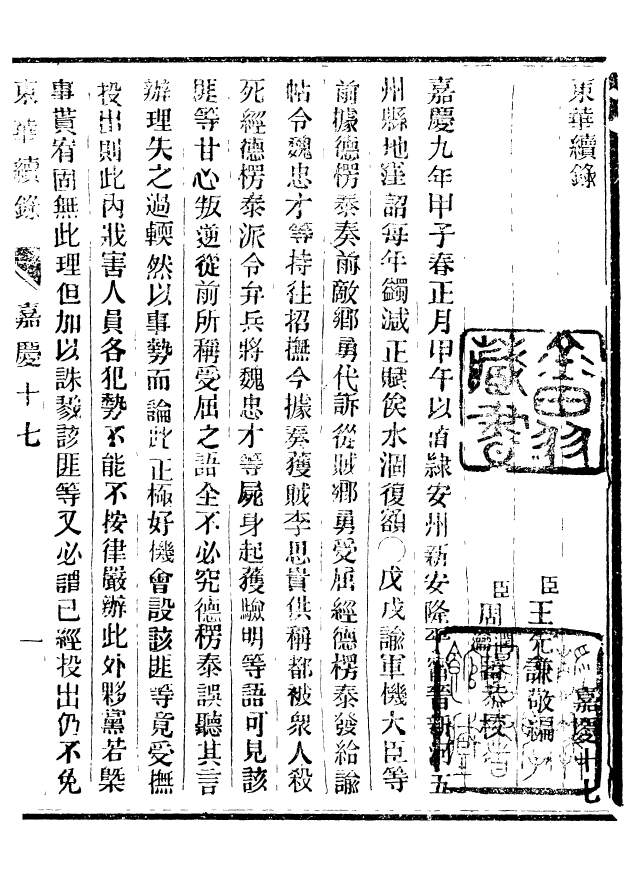 東華續錄
嘉慶十七
臣王先謙敬編
臣周瀹蕃恭校
嘉慶九年甲子春正月甲午以直隸安州新安隆平寧晉新河五
州縣地窪詔每年蠲減正賦俟水涸復額〇戊戌諭軍機大臣等
前據德楞泰奏前敵鄉勇代訴從賊鄉勇受屈經德楞泰發給諭
帖令魏忠才等持往招撫今據奏獲賊李思貴供稱都被衆人殺
死經德楞泰派令弁兵將魏忠才等屍身起獲驗明等語可見該
匪等甘心叛逆從前所稱受屈之語全不必究德楞泰誤聽其言
辦理失之過輭然以事勢而論此正極好機會設該匪等竟受撫
投出則此內戕害人員各犯勢不能不按律嚴辦此外夥黨若槩
事貰宥固無此理但加以誅戮該匪等又必謂已經投出仍不免
東華續錄 嘉慶十七 一